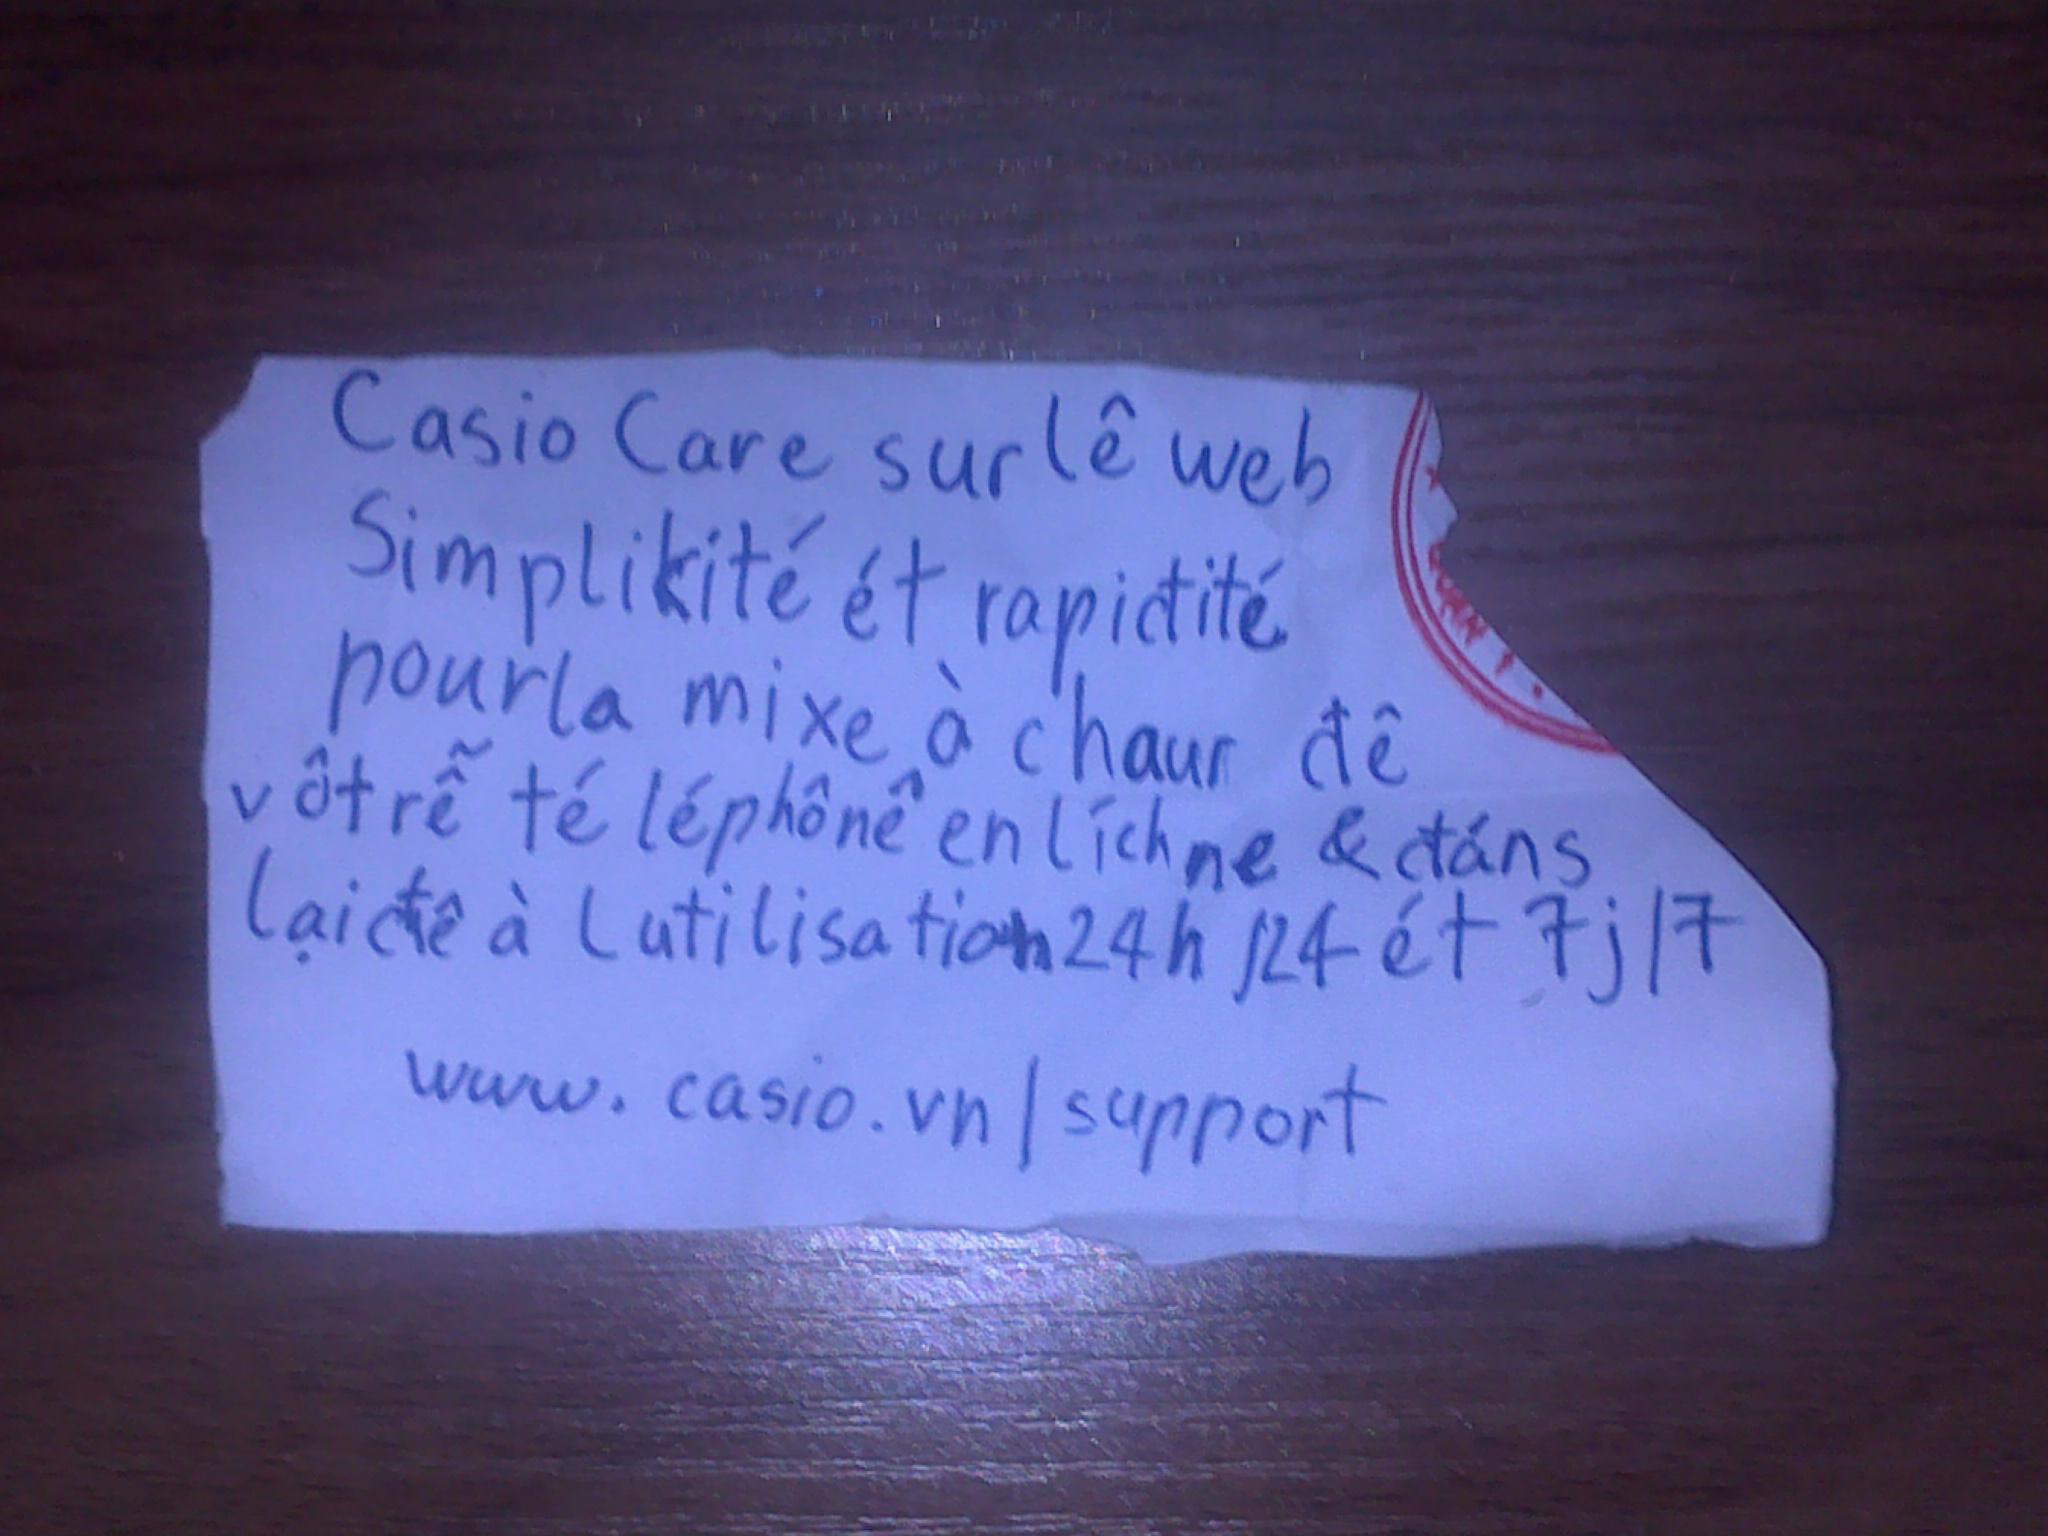 Casio Care sur lê web
Simplikité ét rapiđité
pour la mixe à chaur đê
vôtrễ té léphônê en líchne & đáns
lạiđê à lutilisation 24h/24 ét 7j/7
www.casio.vn/support